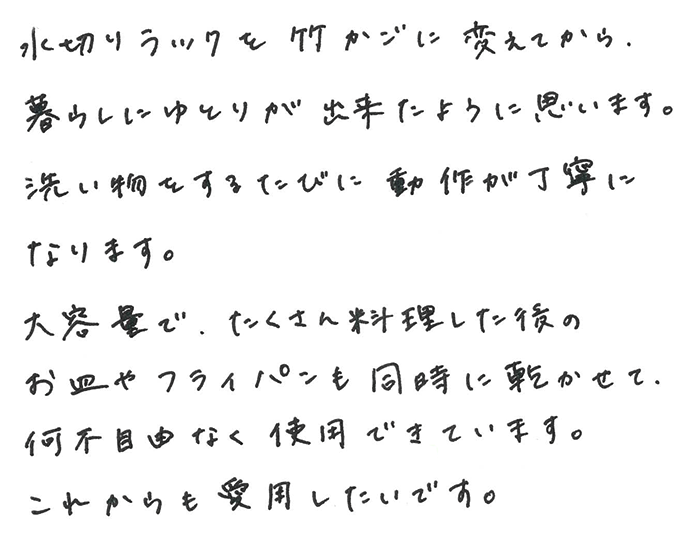 水切りラックを竹かごに変えてから、
暮らしにゆとりが出来たように思います。
洗い物をするたびに動作が丁寧に
なります。
大容量で、たくさん料理した後の
お皿やフライパンも同時に乾かせて、
何不自由なく使用できています。
これからも愛用したいです。